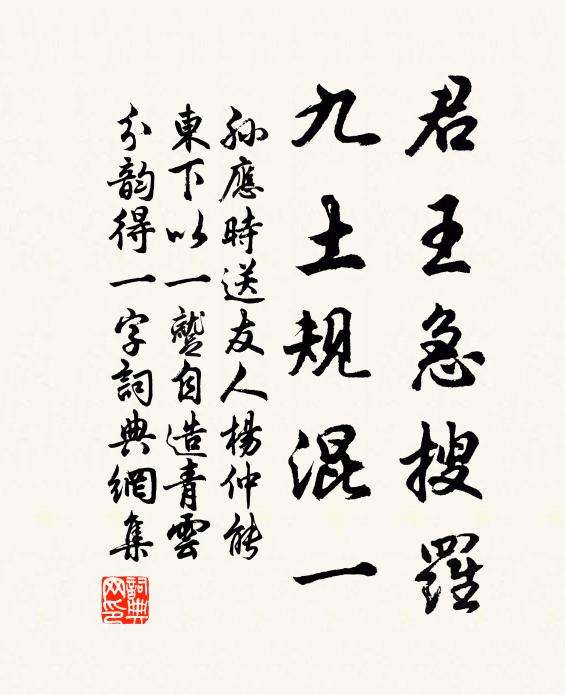 君王急搜羅
九土規混一
孫應時送友人楊仲能
東下以一鶚自造青雲
分韵得一字詞典網集
詞典網印